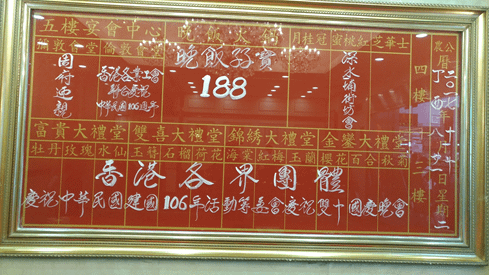 五樓宴會中心
月桂冠 蜜桃紅 芝華士
倫敦會堂
周府迎親
香港各業工會
聯合慶祝
中華民國106週年
晚飯孖寶
188
深水埔街坊會
農公曆
二〇一七年十月十日星期二
四樓
三樓
富貴大禮堂 雙喜大禮堂 錦綉大禮堂 金鑾大禮堂
牡丹 玫瑰 水仙 玉簪 石榴 荷花 海棠 紅梅 玉蘭 櫻花 百合 秋菊
香港各界團體
慶祝中華民國建國106年活動籌委會慶祝雙十國慶晚會